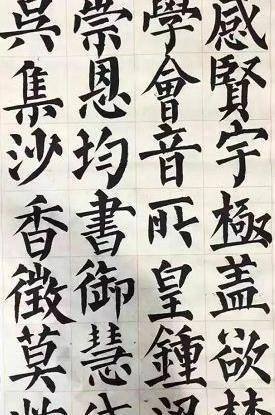 感賢宇極蓋欲
學會音所皇鍾
崇恩均書御慧
吳集沙香徵莫